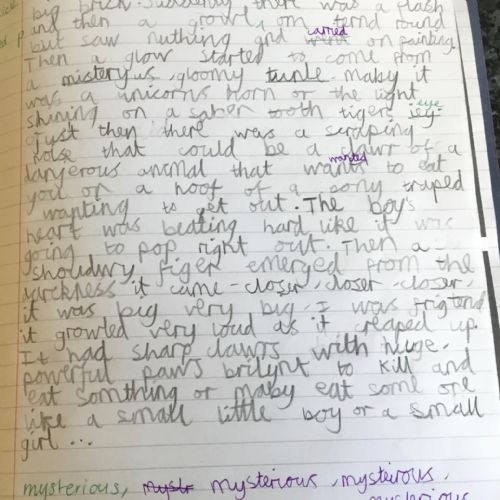 big brick. Suddenly, there was a flash
and then a growl, om ternd round
but saw nuthing and carried on painting.
Then a glow started to come from
a misteryus, gloomy tunle. maby it
was a unicorns horn or the light
shining on a saber tooth tigers eye
Just then there was a scraping
noise that could be a claw of a
dangerous animal that wanted to eat
you or a hoof of a pony traped
wanting to get out. The boy's
heart was beating hard like it was
going to pop right out. Then a
shoudwry figer emerged from the
darckness it came - closer, closer closer,
it was big very big. I was frigtond
it growled very loud as it creaped up.
It had sharp clawrs with huge.
powerful paws to kill and
eat somthing or maby eat some one
like a small little boy or a small
girl ...
mysterious, mystr mysterious, mysterious,
mysterious